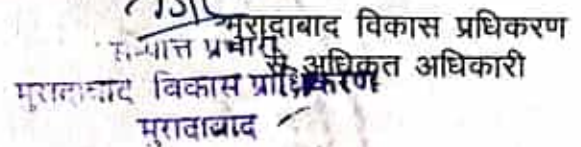 मुरादाबाद विकास प्रधिकरण
प्रभारी
से अधिकृत अधिकारी
मुरादाबाद विकास प्राधिकरण
मुरादाबाद